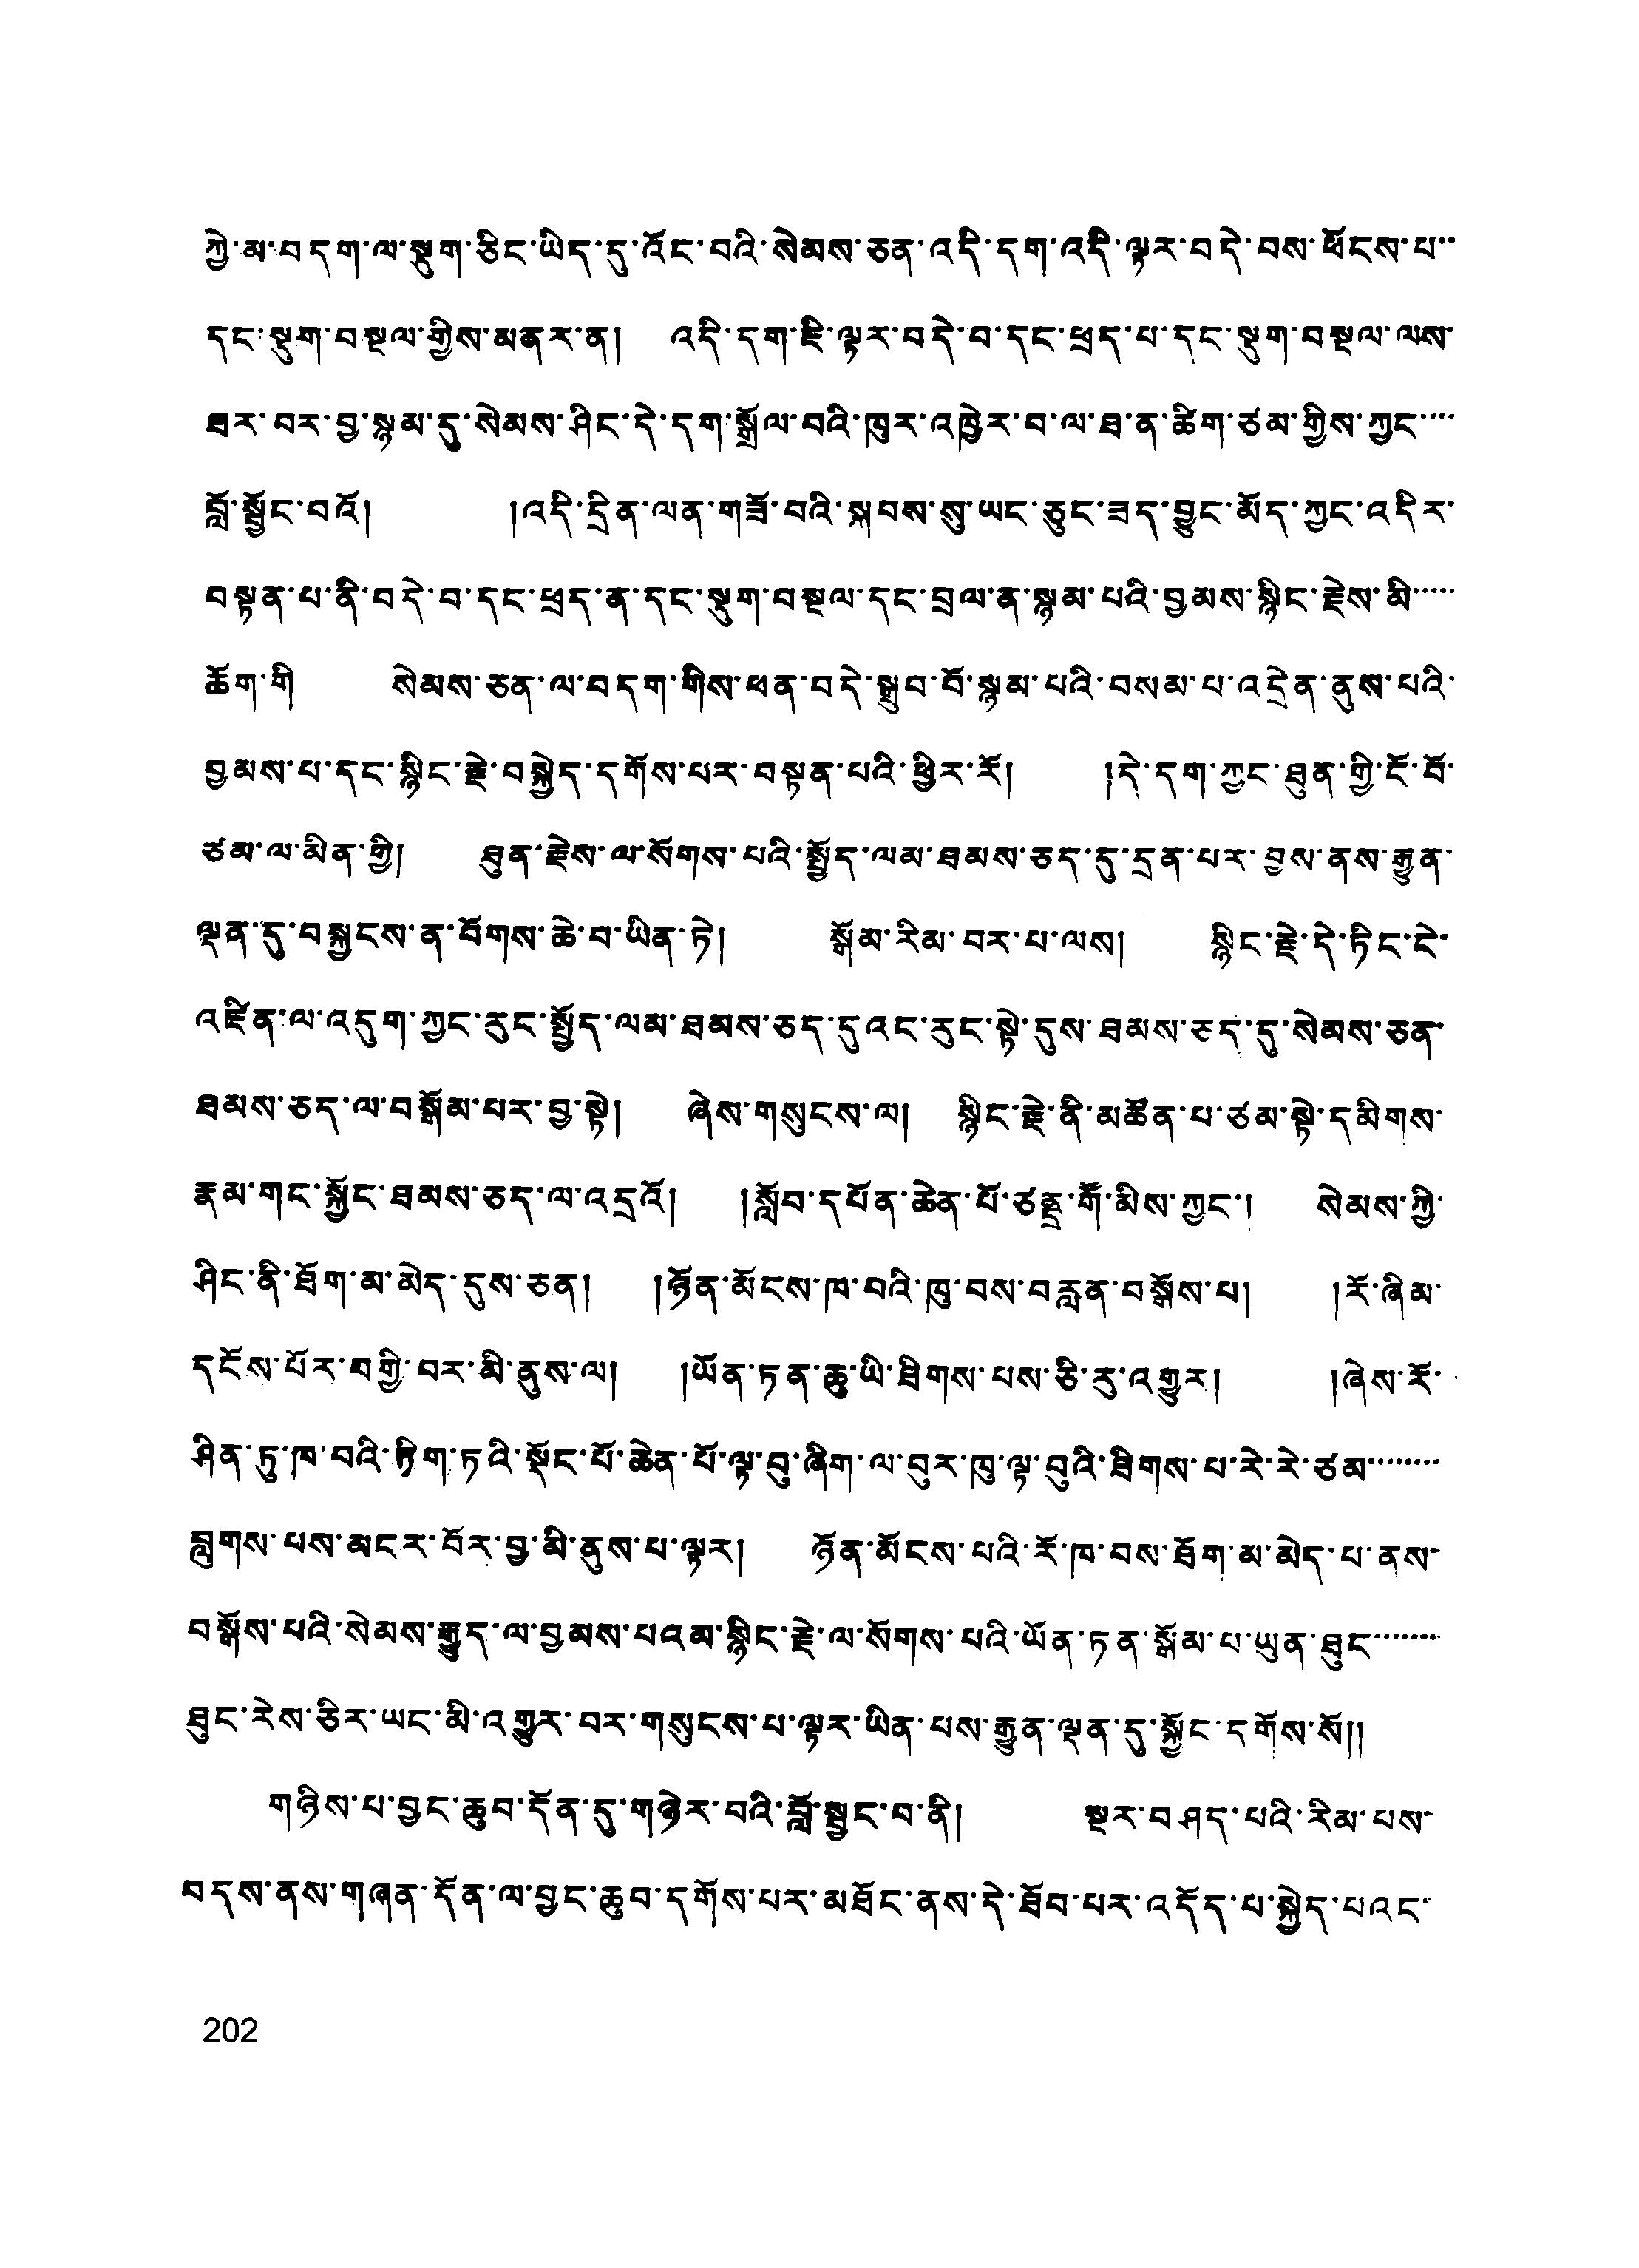 ཀྱེ་མ་བདག་ལ་སྡུག་ཅིང་ཡིད་དུ་འོང་བའི་སེམས་ཅན་འདི་དག་འདི་ལྟར་བདེ་བས་ཕོངས་པ་་
དང་སྡུག་བསྔལ་གྱིས་མནར་ན། འདི་དག་ཇི་ལྟར་བདེ་བ་དང་ཕྲད་པ་དང་སྡུག་བསྔལ་ལས་
ཐར་བར་བྱ་སྙམ་དུ་སེམས་ཤིང་དེ་དག་སྒྲོལ་བའི་ཁུར་འཁྱེར་བ་ལ་ཐ་ན་ཚིག་ཙམ་གྱིས་ཀྱང་་་་
བློ་སྦྱོང་བའོ། །འདི་དྲིན་ལན་གཟོ་བའི་སྐབས་སུ་ཡང་ཅུང་ཟད་བྱུང་མོད་ཀྱང་འདིར་
བསྟན་པ་ནི་བདེ་བ་དང་ཕྲད་ན་དང་སྡུག་བསྔལ་དང་བྲལ་ན་སྙམ་པའི་བྱམས་སྙིང་རྗེས་མི་་་་་
ཆོག་གི སེམས་ཅན་ལ་བདག་གིས་ཕན་བདེ་སྒྲུབ་བོ་སྙམ་པའི་བསམ་པ་འདྲེན་ནུས་པའི་
བྱམས་པ་དང་སྙིང་རྗེ་བསྐྱེད་དགོས་པར་བསྟན་པའི་ཕྱིར་རོ། །དེ་དག་ཀྱང་ཐུན་གྱི་ངོ་བོ་
ཙམ་ལ་མིན་གྱི། ཐུན་རྗེས་ལ་སོགས་པའི་སྤྱོད་ལམ་ཐམས་ཅད་དུ་དྲན་པར་བྱས་ནས་རྒྱུན་
ལྡན་དུ་བསྐྱངས་ན་བོགས་ཆེ་བ་ཡིན་ཏེ། སྒོམ་རིམ་བར་པ་ལས། སྙིང་རྗེ་དེ་ཏིང་ངེ་
འཛིན་ལ་འདུག་ཀྱང་རུང་སྤྱོད་ལམ་ཐམས་ཅད་དུའང་རུང་སྟེ་དུས་ཐམས་ཅད་དུ་སེམས་ཅན་
ཐམས་ཅད་ལ་བསྒོམ་པར་བྱ་སྟེ། ཞེས་གསུངས་ལ། སྙིང་རྗེ་ནི་མཚོན་པ་ཙམ་སྟེ་དམིགས་
རྣམ་གང་སྐྱོང་ཐམས་ཅད་ལ་འདྲའོ། །སློབ་དཔོན་ཆེན་པོ་ཙནྡྲ་གོ་མིས་ཀྱང་། སེམས་ཀྱི་
ཤིང་ནི་ཐོག་མ་མེད་དུས་ཅན། །ཉོན་མོངས་ཁ་བའི་ཁུ་བས་བརླན་བསྒོས་པ། །རོ་ཞིམ་
དངོས་པོར་བགྱི་བར་མི་ནུས་ལ། །ཡོན་ཏན་ཆུ་ཡི་ཐིགས་པས་ཅི་རུ་འགྱུར། །ཞེས་རོ་
ཤིན་ཏུ་ཁ་བའི་ཏིག་ཏའི་སྡོང་པོ་ཆེན་པོ་ལྟ་བུ་ཞིག་ལ་བུར་ཁུ་ལྟ་བུའི་ཐིགས་པ་རེ་རེ་ཙམ་་་་་་་་
བླུགས་པས་མངར་བོར་བྱ་མི་ནུས་པ་ལྟར། ཉོན་མོངས་པའི་རོ་ཁ་བས་ཐོག་མ་མེད་པ་ནས་
བསྒོས་པའི་སེམས་རྒྱུད་ལ་བྱམས་པའམ་སྙིང་རྗེ་ལ་སོགས་པའི་ཡོན་ཏན་སྒོམ་པ་ཡུན་ཐུང་་་་་་་
ཐུང་རེས་ཅིར་ཡང་མི་འགྱུར་བར་གསུངས་པ་ལྟར་ཡིན་པས་རྒྱུན་ལྡན་དུ་སྐྱོང་དགོས་སོ།།
གཉིས་པ་བྱང་ཆུབ་དོན་དུ་གཉེར་བའི་བློ་སྦྱང་བ་ནི། སྔར་བཤད་པའི་རིམ་པས་
བདས་ནས་གཞན་དོན་ལ་བྱང་ཆུབ་དགོས་པར་མཐོང་ནས་དེ་ཐོབ་པར་འདོད་པ་སྐྱེད་པའང་
202